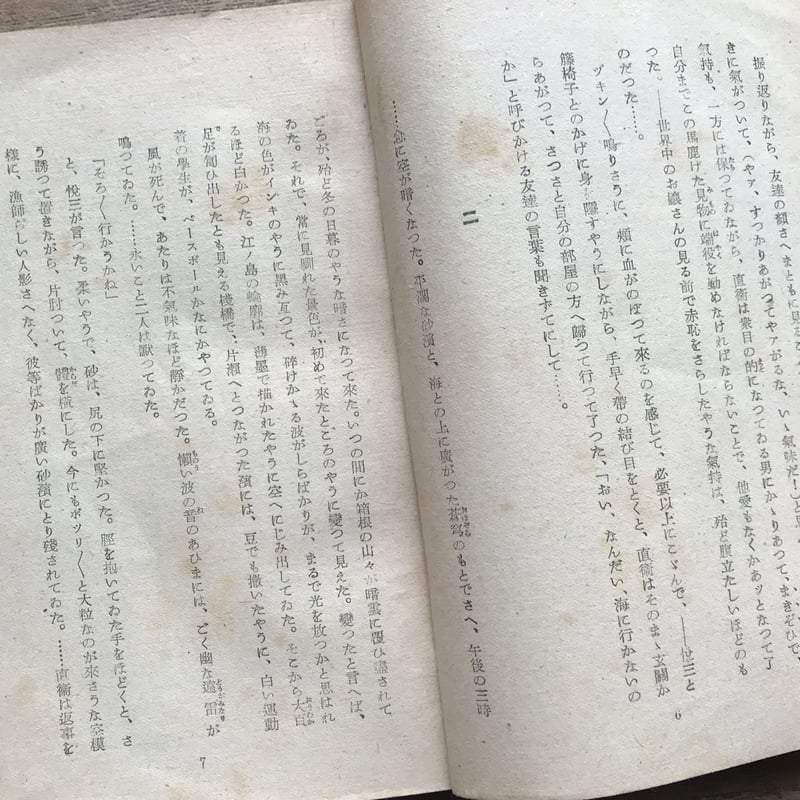 振り返りながら、友達の顏さへまともに見る
きに氣がついて、（やァ、すつかりあがつてやァがるな、いゝ氣味だ！）と
氣持も、一方には保つてゐながら、直衞は衆目の的になつてゐる男にかゝりあつて、まきぞひで、
自分までこの馬鹿げた見物に端役を勤めなければならないことで、他愛もなくかあッとなつて了
つた。――世界中のお孃さんの見る前で赤恥をさらしたやうな氣持は、殆ど腹立たしいほどのも
のだつた……。
ヅキン／＼鳴りさうに、頰に血がのぼつて來るのを感じて、必要以上にこゞんで、――悦三と
籐椅子とのかげに身を隱すやうにしながら、手早く帶の結び目をとくと、直衞はそのまゝ玄關か
らあがつて、さつさと自分の部屋の方へ歸つて行つて了つた、「おい、なんだい、海に行かないの
か」と呼びかける友達の言葉も聞きずてにして……。
二
……急に空が暗くなつた。平濶な砂濱と、海との上に廣がつた蒼穹のもとでさへ、午後の三時
6
ごろが、殆ど冬の日暮のやうな暗さになつて來た。いつの間にか箱根の山々が暗雲に覆ひ盡されて
ゐた。それで、常に見馴れた景色が、初めて來たところのやうに變つて見えた。變つたと言へば、
海の色がインキのやうに黑み亙つて、碎けかゝる波がしらばかりが、まるで光を放つかと思はれ
るほど白かつた。江ノ島の輪廓は、薄墨で描かれたやうに空へにじみ出してゐた。そこから大百
足が匐ひ出したとも見える棧橋で、片瀨へとつながつた濱には、豆でも撒いたやうに、白い運動
着の學生が、ベースボールかなにかやつてゐる。
風が死んで、あたりは不氣味なほど靜かだつた。懶い波の音のあひまには、ごく幽な遠雷が
鳴つてゐた。……永いこと二人は默つてゐた。
「そろ／＼行かうかね」
と、悦三が言つた。柔いやうで、砂は、尻の下に堅かつた。脛を抱いてゐた手をほどくと、さ
う誘つて置きながら、片肘ついて、體を橫にした。今にもポツリ／＼と大粒なのが來さうな空模
樣に、漁師らしい人影さへなく、彼等ばかりが廣い砂濱にとり殘されてゐた。……直衞は返事を
7